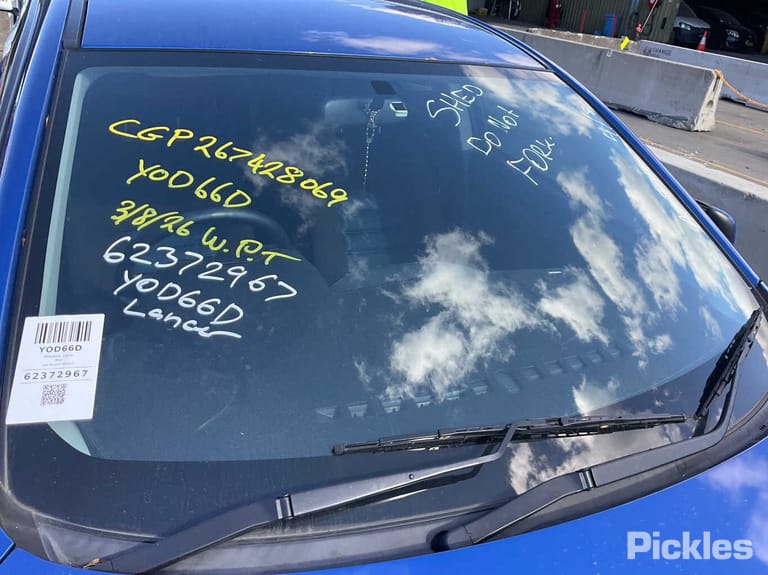 CGP267428069
YOD66D
3/8/26 W.P.T
62372967
YOD66D
Lancer
SHED
Do Not
FORK
YOD66D
62372967
Pickles